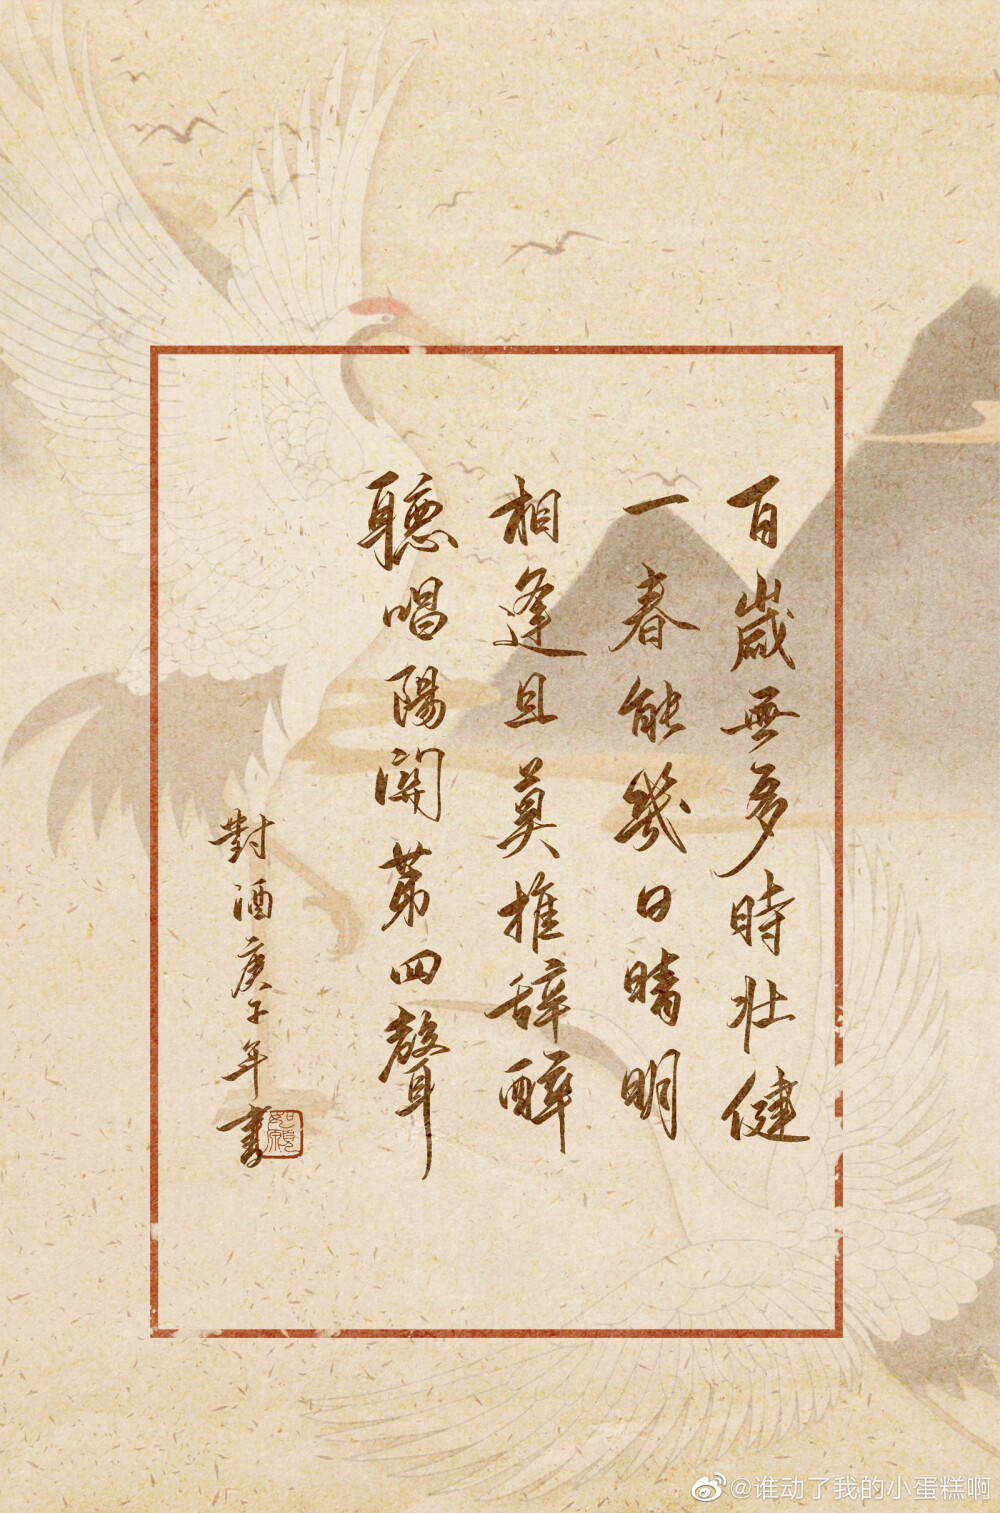 百歲無多時壯健
一春能幾日晴明
相逢且莫推辞醉
聽唱陽関第四聲
對酒庚子年書
如願
@谁动了我的小蛋糕啊